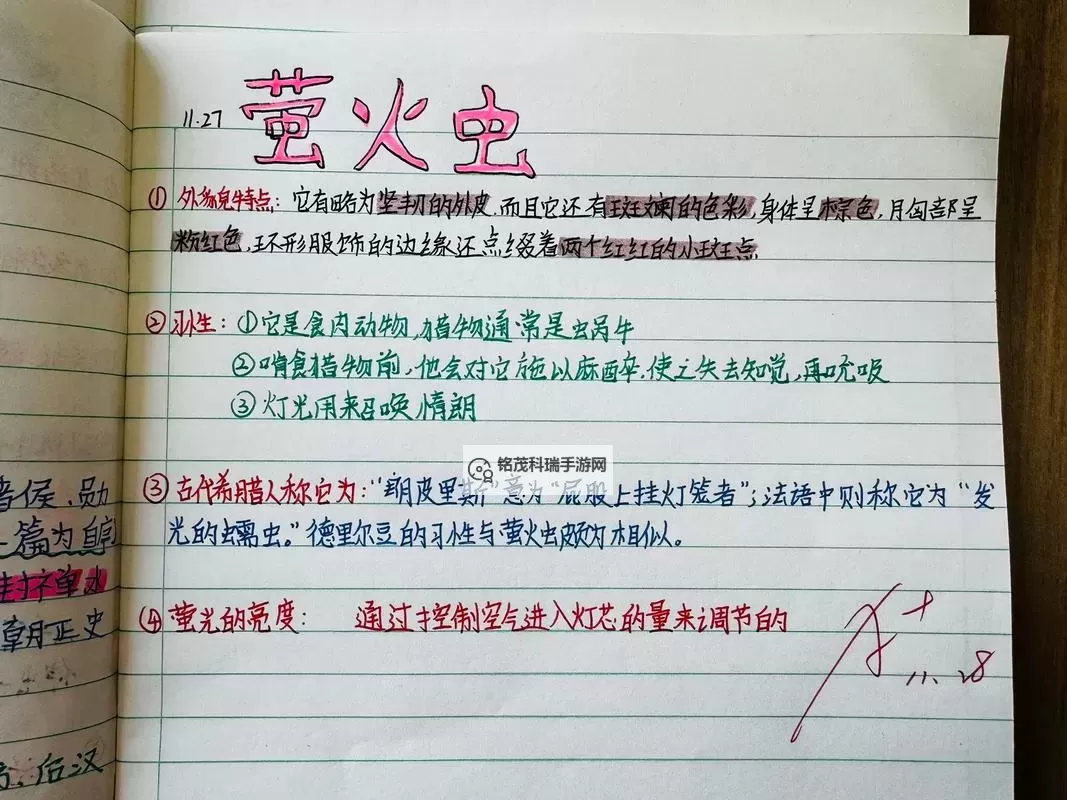 11.27 萤火虫
① 外貌特点：它有略为坚韧的外皮,而且它还有斑斓的色彩,身体呈棕色,胸部呈
粉红色,环形服饰的边缘还点缀着两个红红的小斑点
② 习性：①它是食肉动物,猎物通常是蜗牛
②啃食猎物前,他会对它施以麻醉.使之失去知觉,再吮吸
③ 灯光用来召唤情朗
铭茂科瑞手游网
③ 古代希腊人称它为："朗皮里斯"意为"屁股上挂灯笼者"；法语中则称它为"发
光的蠕虫。"德里尔豆的习性与萤火虫颇为相似。
④ 萤光的亮度： 通过控制空气进入灯芯的量来调节的
11.28
侯.勋
篇为自
禅
正史
后汉